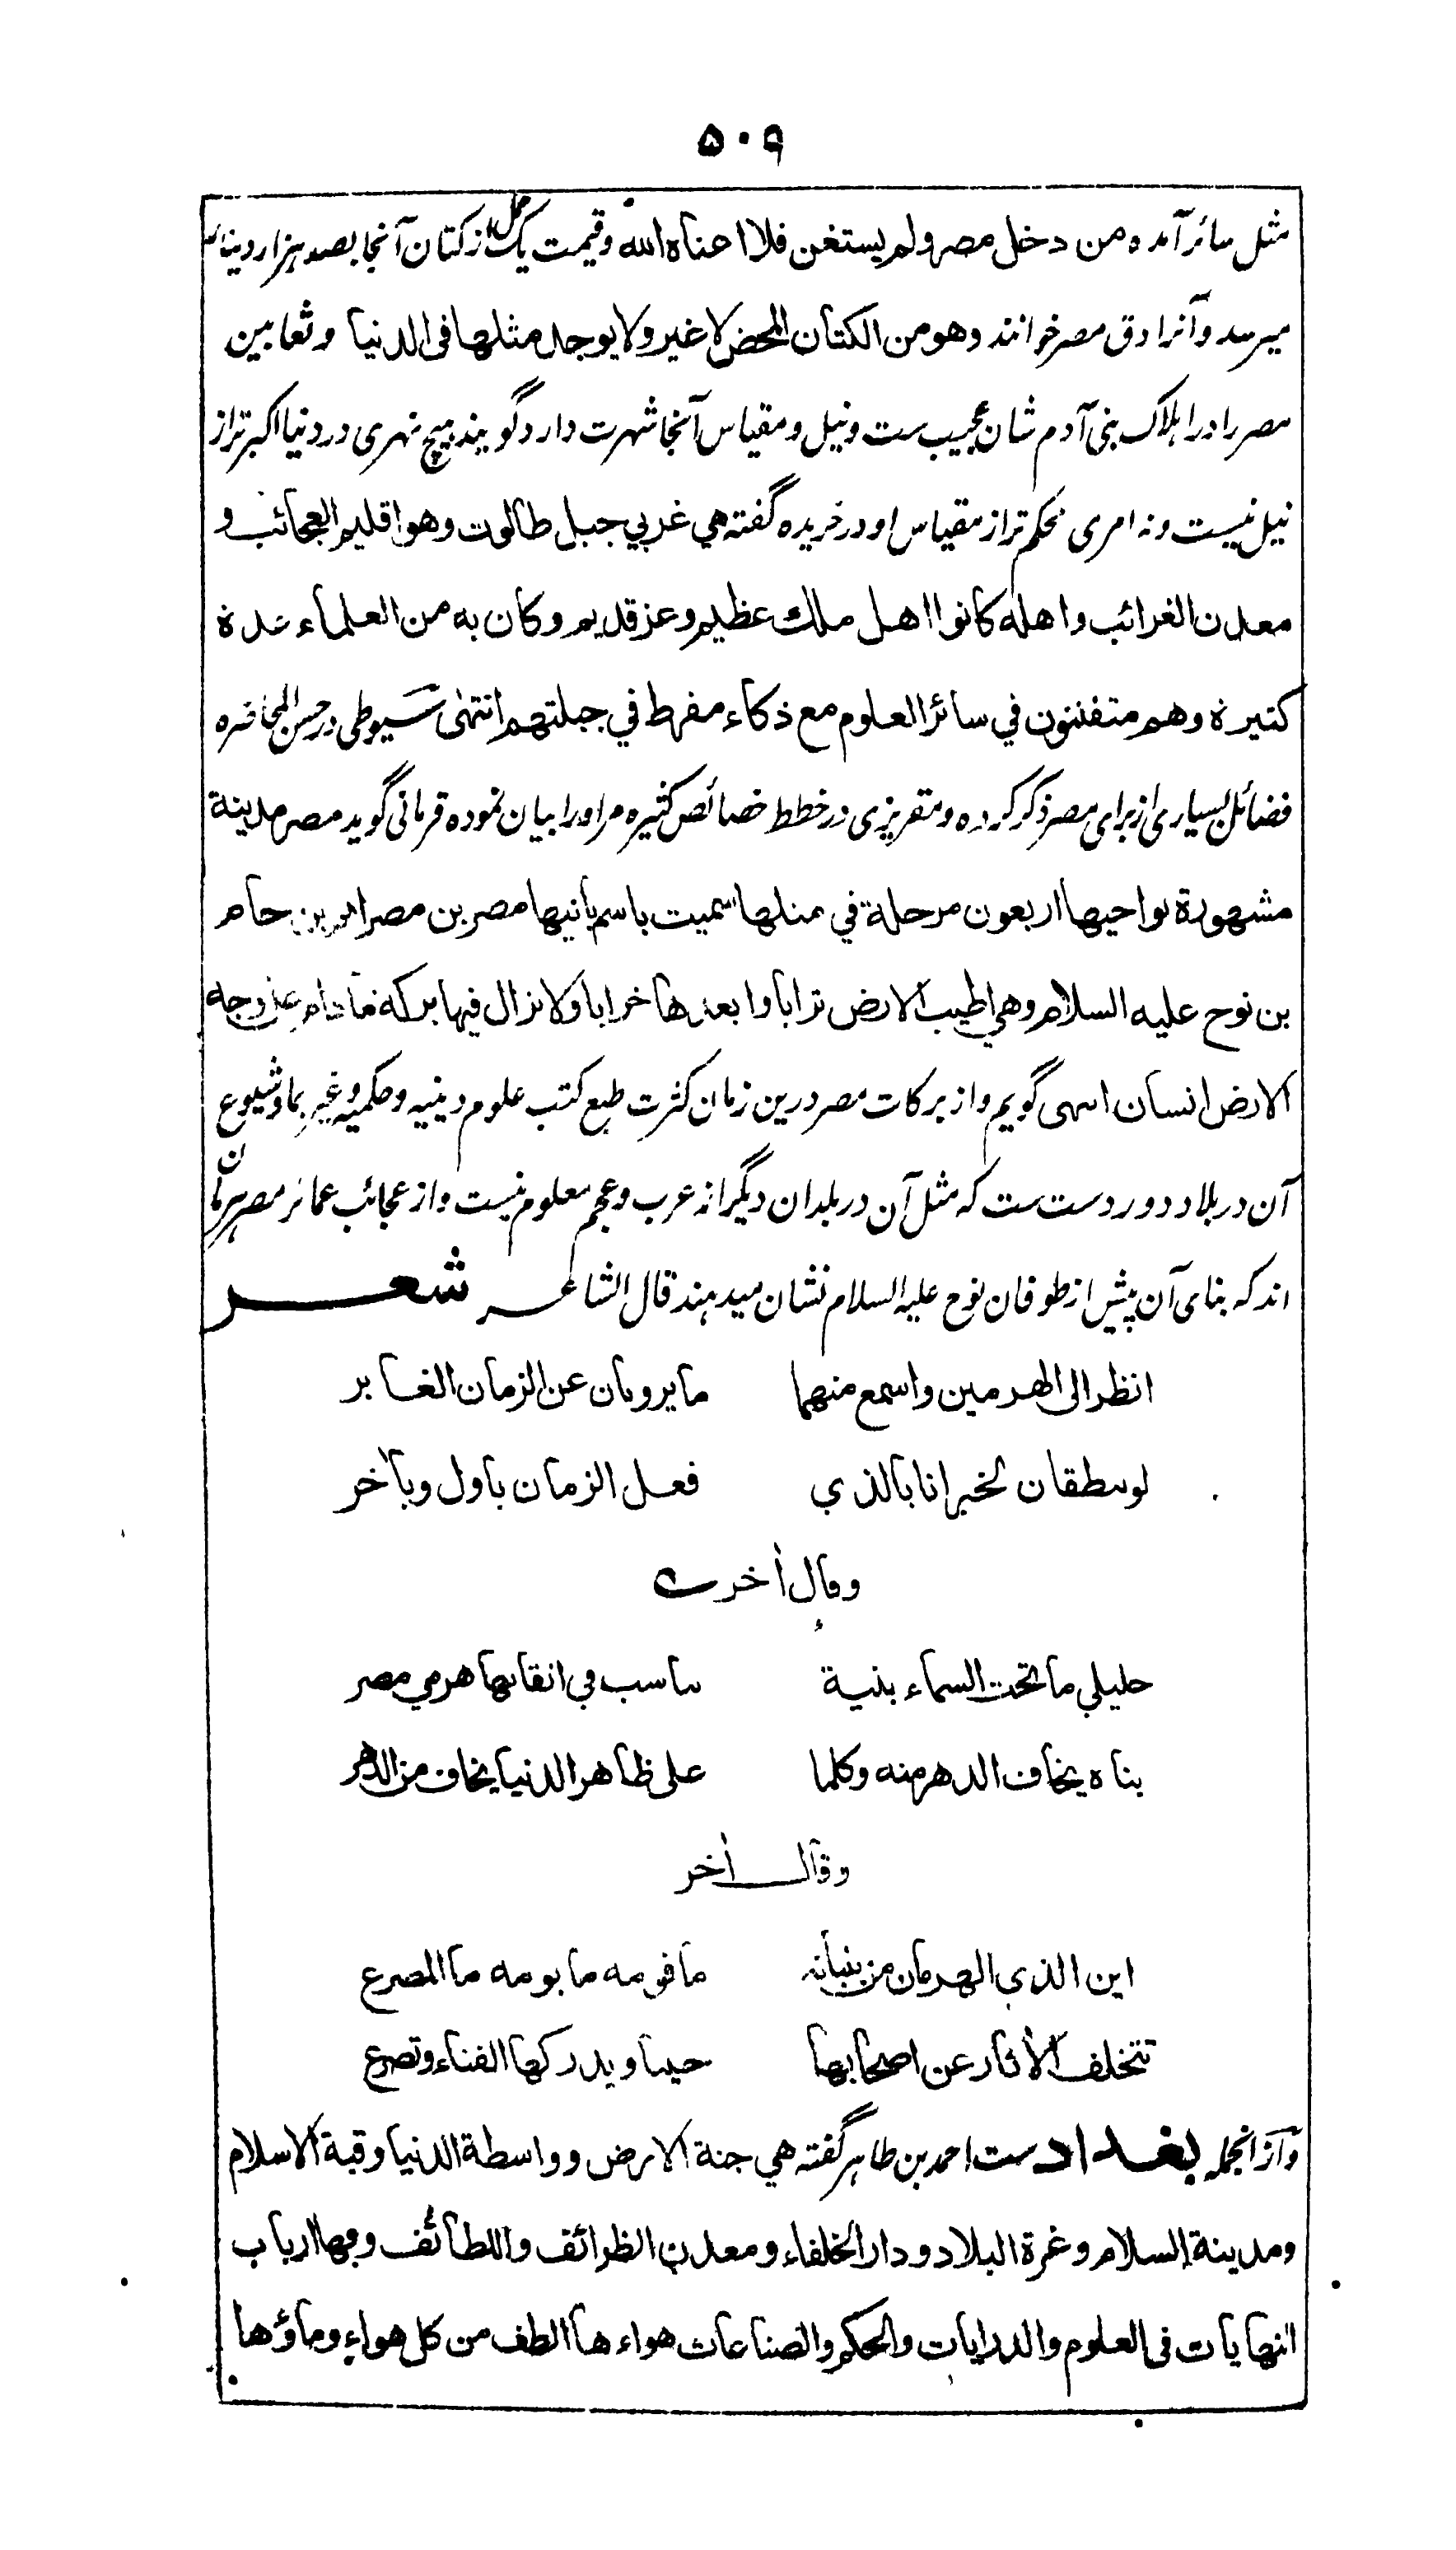 ۵۰۹
مثل سائر آمده من دخل مصر ولم يستغن فلا اغناه الله وقیمت یک حمل از کتان آنجا بصد هزار دینار
میرسد و آنرا دق مصر خوانند وهو من الكتان المحض لا غير ولا يوجد مثلها فى الدنيا وثعابین
مصر را در اہلاک بنی آدم شان عجیب ست ونیل و مقیاس آنجا شهرت دارد گویند ہیچ نہری در دنیا اکبر تر از
نیل نیست ونه امری محکم تر از مقیاس او در خریده گفته هي غربي جبل طالوت وهو اقليم العجائب و
معدن الغرائب واهله كانوا اهل ملك عظيم وعز قديم وكان به من العلماء عدة
كثيرة وهم متفننون في سائر العلوم مع ذكاء مفرط في جبلتهم انتهى سیوطی در حسن المحاضره
فضائل بسیاری از برای مصر ذکر کرده و مقریزی در خطط خصائص کثیره مر اورا بیان نموده قرمانی گوید مصر مدينة
مشهورة نواحيها اربعون مرحلة في مثلها سميت باسم بانيها مصر بن مصرايم بن حام
بن نوح عليه السلام وهي اطيب الارض ترابا وابعدها خرابا ولا تزال فيها بركة ما دام على وجه
الارض انسان انتهى گویم و از برکات مصر درین زمان کثرت طبع کتب علوم دینیه و حکمیه وغیرہما و شیوع
آن در بلاد دور دست ست که مثل آن در بلدان دیگر از عرب و عجم معلوم نیست و از عجائب عمائر مصر ہرمان
اند که بنای آن پیش از طوفان نوح علیه السلام نشان میدہند قال الشاعر شعر
انظر الى الهرمين واسمع منهما ما يرويان عن الزمان الغابر
لو ينطقان لخبرانا بالذي فعل الزمان باول وبآخر
وقال آخر
خليلي ما تحت السماء بنية تناسب في اتقانها هرمي مصر
بناء يخاف الدهر منه وكلما على ظاهر الدنيا يخاف من الدهر
وقال آخر
اين الذي الهرمان من بنيانه ما قومه ما يومه ما المصرع
تتخلف الآثار عن اصحابها حينا ويدركها الفناء وتصرع
و از انجمله بغداد ست احمد بن طاہر گفته هي جنة الارض وواسطة الدنيا وقبة الاسلام
ومدينة السلام وغرة البلاد ودار الخلفاء ومعدن الظرائف واللطائف وبها ارباب
النهايات فى العلوم والدرايات والحكم والصناعات هواءها الطف من كل هواء وماؤها